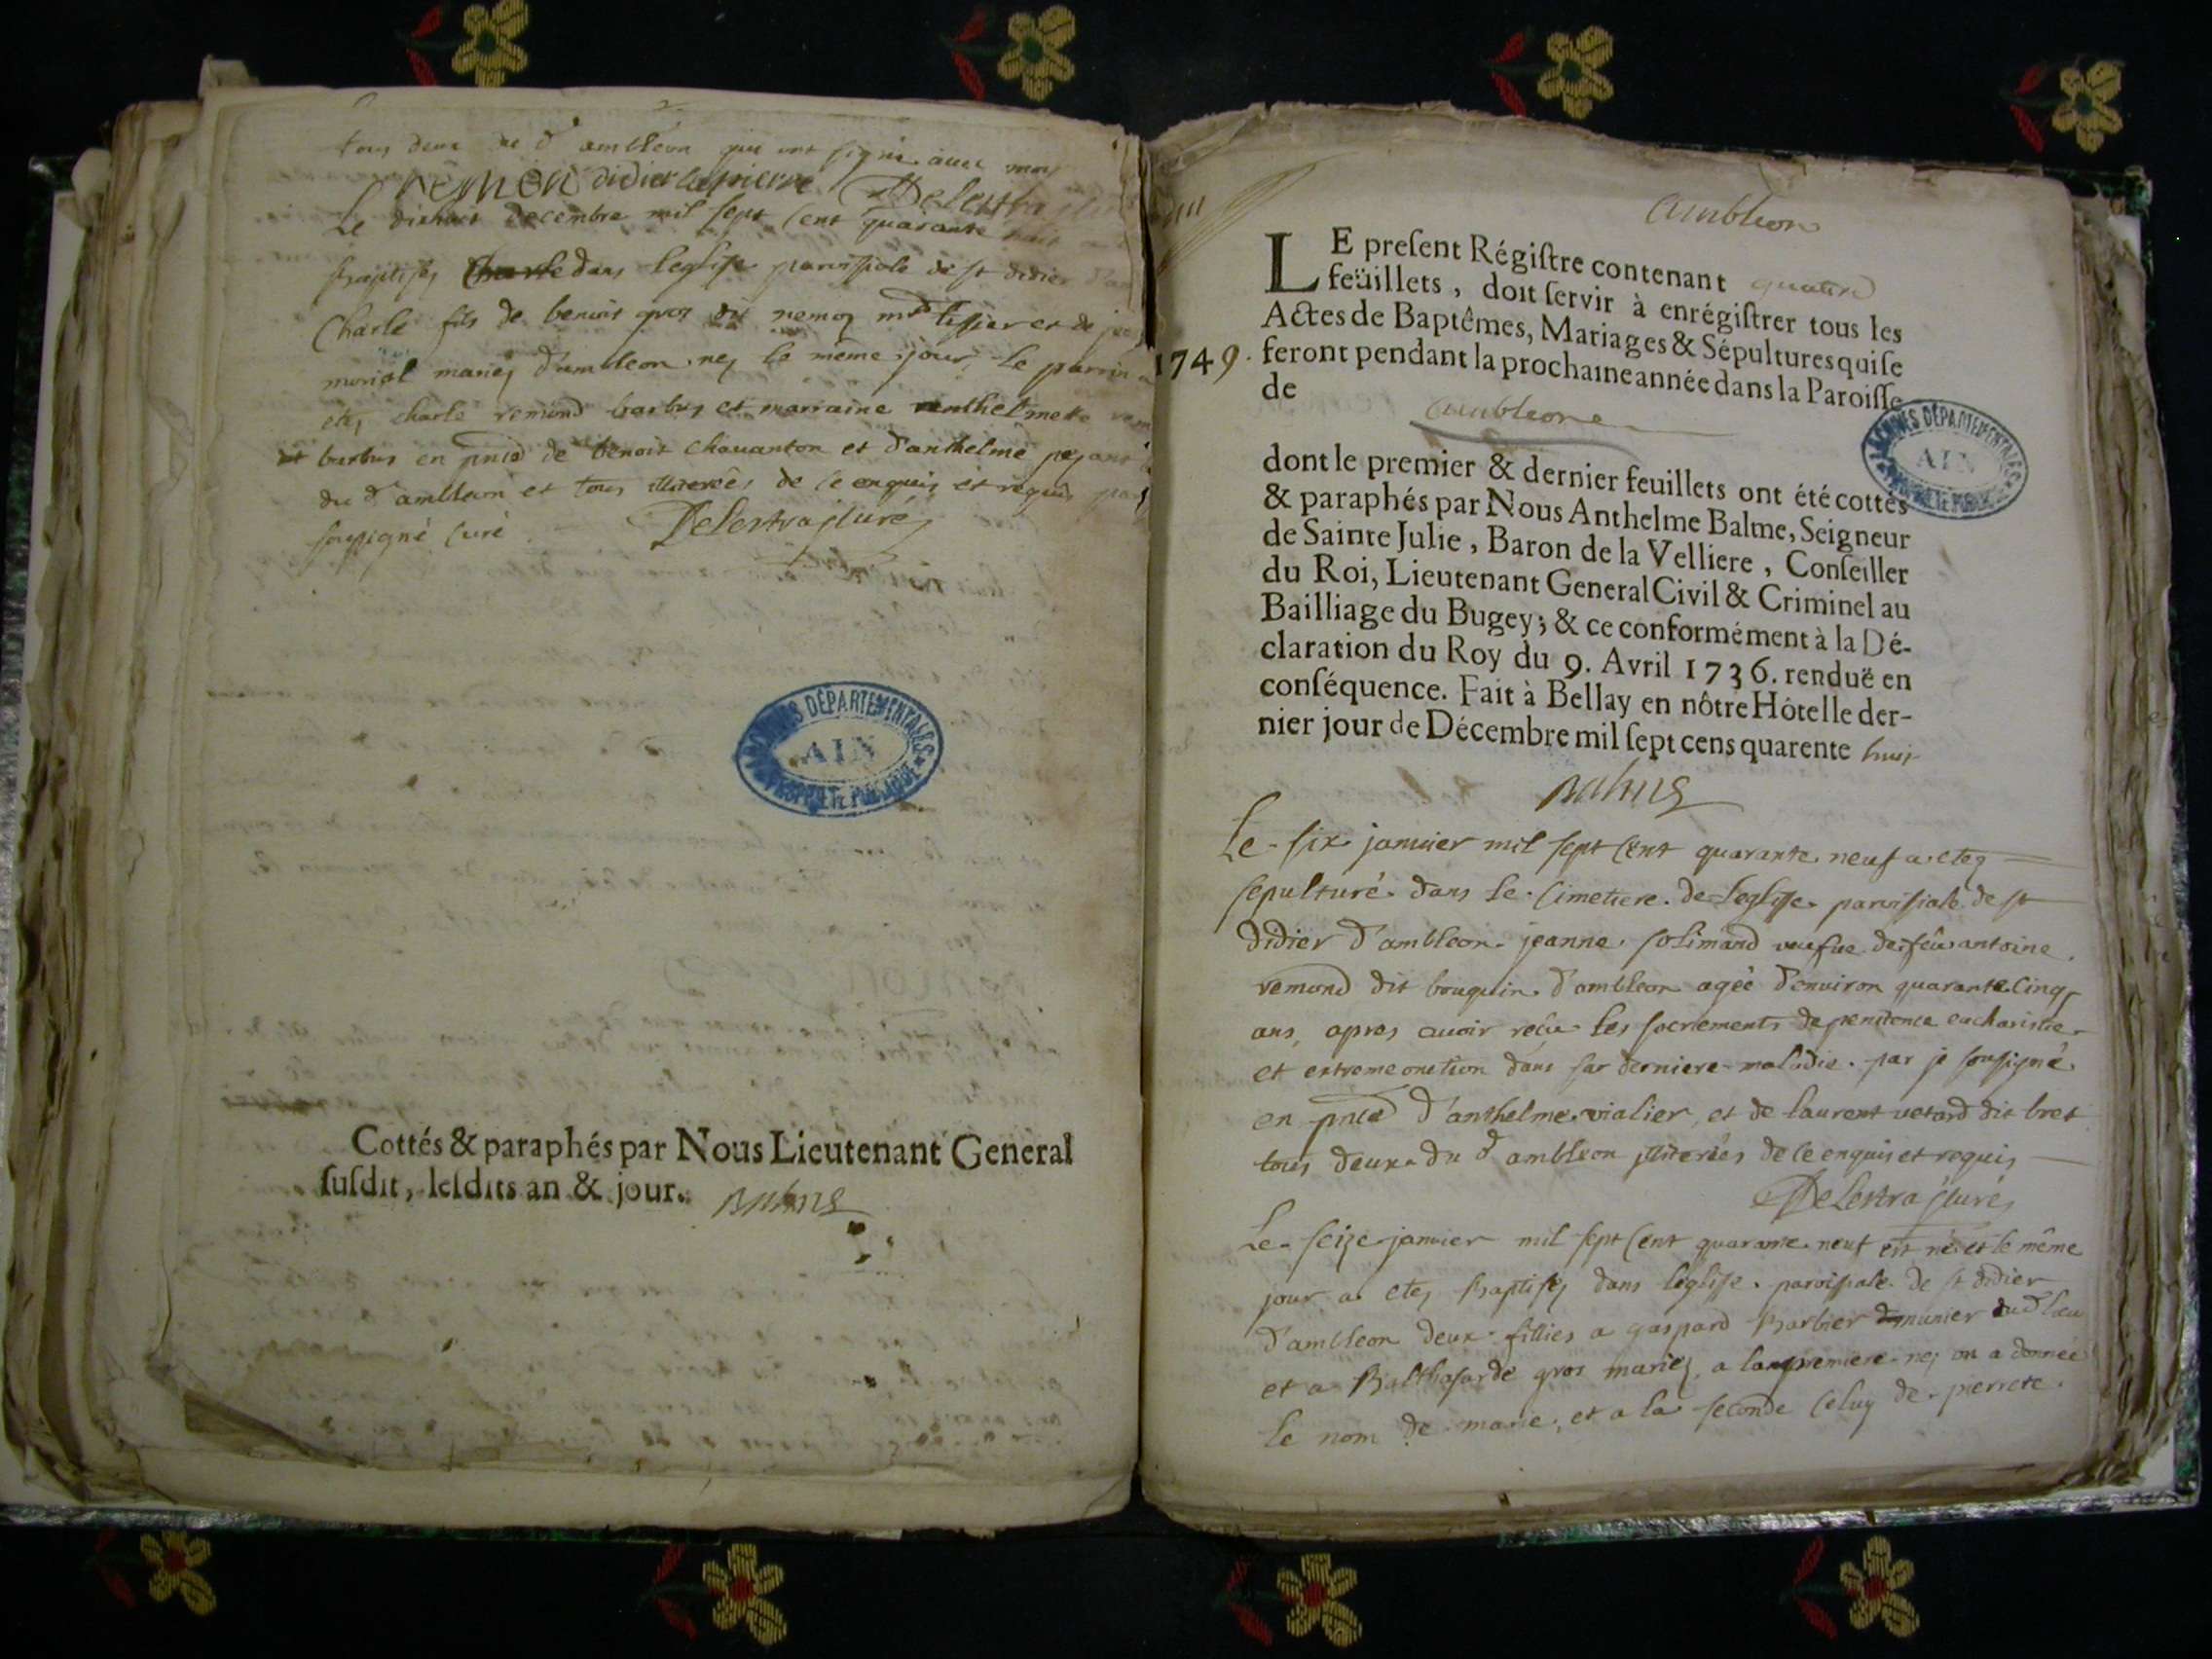 tous deux du d ambleon qui ont signé avec moy
Remon didier lapierre Delestra
Le dixhuit decembre mil sept cent quarante huit
baptisés dans leglise paroissiale de st didier
Charle fils de benoit gros dit nemoz md tissier et de
marièz d'ambleon nez le même jour, le parrin a
etez charle remond barbus et marraine anthelmette
dit barbus en pnce de benoit chavanton et d'anthelme
du d ambleon et tous illiterées de ce enquis et requis par
soussigné curé Delestra curé
ARCHIVES DÉPARTEMENTALES
AIN
PROPRIÉTÉ PUBLIQUE
Cottés & paraphés par Nous Lieutenant General
susdit, lesdits an & jour. Balme
Ambleon
LE present Régistre contenant quatre
feüillets, doit servir à enrégistrer tous les
Actes de Baptêmes, Mariages & Sépultures qui se
1749. feront pendant la prochaine année dans la Paroisse
de
ambleon
ARCHIVES DÉPARTEMENTALES
AIN
PROPRIÉTÉ PUBLIQUE
dont le premier & dernier feuillets ont été cottés
& paraphés par Nous Anthelme Balme, Seigneur
de Sainte Julie, Baron de la Velliere, Conseiller
du Roi, Lieutenant General Civil & Criminel au
Bailliage du Bugey; & ce conformément à la Dé-
claration du Roy du 9. Avril 1736. renduë en
conséquence. Fait à Bellay en nôtre Hôtel le der-
nier jour de Décembre mil sept cens quarente huit
Balme
Le six janvier mil sept cent quarante neuf a etez
sepulturé dans le cimetiere de leglise paroissiale de st
didier d'ambleon jeanne solimand veufve de feu antoine
remond dit bouquin d'ambleon agéé d'environ quarante cinq
ans, apres avoir reçu les sacrements de penitence eucharistie
et extreme onction dans sa derniere maladie. par je sousigné
en pnce d'anthelme vialier, et de laurent vetard dit bret
tous deux du d ambleon illiterées de ce enquis et requis
Delestra curé
Le seize janvier mil sept cent quarante neuf est né et le même
jour a etez baptisez dans l'eglise paroissiale de st didier
d'ambleon deux fillies a gaspard Barbier munier du d lieu
et a Balthasarde gros mariez, a la premiere nez on a donnée
le nom de marie, et a la seconde celuy de pierrete.